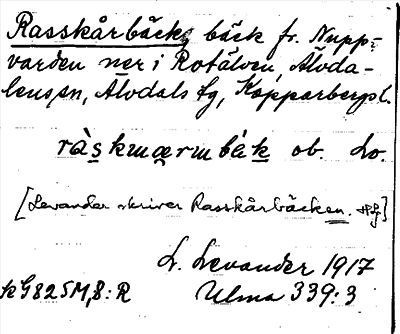 Rasskårbäck, bäck fr. Nupp=
varden ner i Rotälven, Älvda-
lens sn, Älvdals fg, Kopparbergs l.
ràskmœrmbɛ́k ob. Lo.
[Levander skriver Rasskårbäcken.
L. Levander 1917
Ulma 339:3